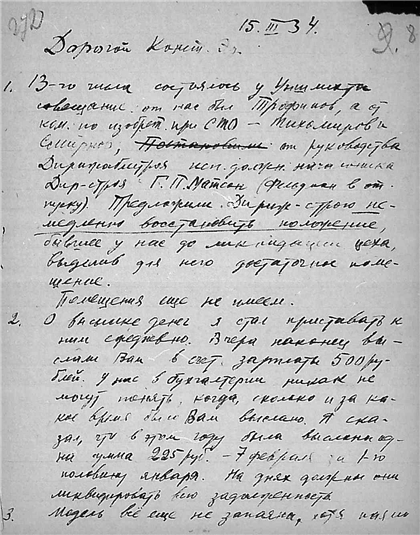 15.III 34.
Дорогой Конст. Эд.
1. 13-го числа состоялось у Уншлихта
совещание: от нас был Трофимов, а от
ком. по изобрет. при СТО – Тихомиров и
Смирнов, Постановили от руководства
Дирижаблестроя исп. должн. начальника
Дир-строя Г. П. Матсон (Фельдман в от-
пуску). Предложили Дириж-строю не-
медленно восстановить положение,
бывшее у нас до ликвидации цеха,
выделив для него достаточное поме-
щение.
Помещения еще не имеем.
2. О высылке денег я стал приставать к
ним ежедневно. Вчера наконец вы-
слали Вам в счет зарплаты 500 ру-
блей. У нас в бухгалтерии никак не
могут понять, когда, сколько и за ка-
кое время было Вам выслано. Я ска-
зал, что в этом году была выслана од-
на сумма 225 руб. – 7 февраля за 1-ю
половину января. На днях должны они
ликвидировать всю задолженность
3. Модель всё еще не запаяна, хотя